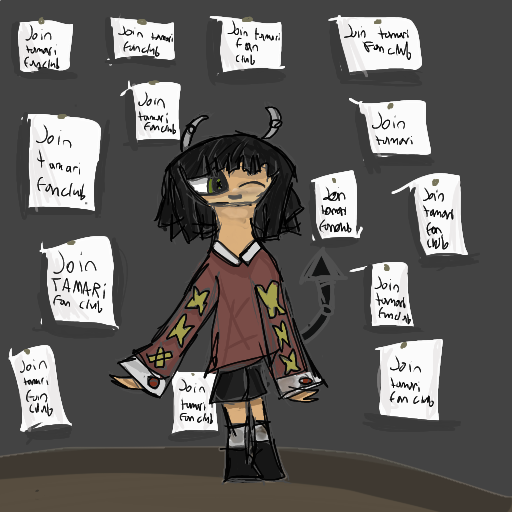 Join
tamari
fanclub
Join tamari
Fanclub
Join tamari
Fan
club
Join tamari
Fan club
Join
tamari
Fanclub
Join
tamari
Join
tamari
Fanclub.
Join
tamari
Fanclub
Join
tamari
Fan
club
Join
TAMARI
Fan club
Join
tamari
Fanclub
Join
tamari
Fan
club
Join
tamari
Fan club
Join
tamari
Fan club